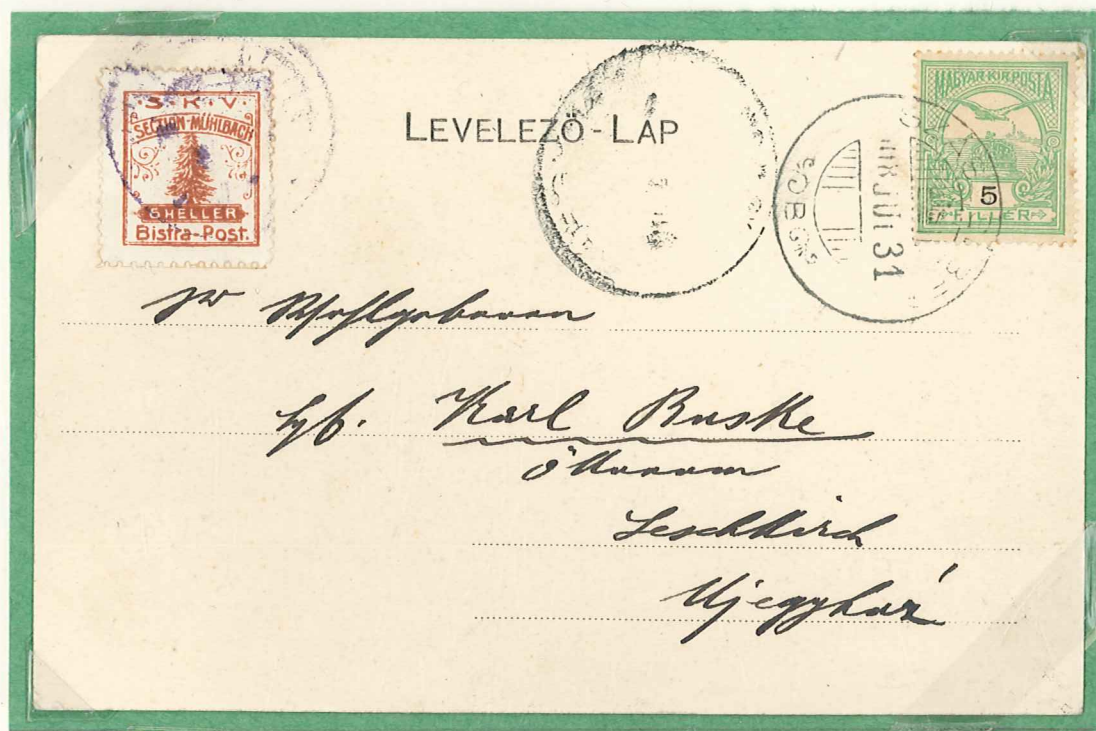 S. K. V.
SECTION-MÜHLBACH
HELLER
Bistra-Post.
LEVELEZŐ-LAP
MAGYAR KIR. POSTA
5
FILLÉR
JUL 31
Wohlgeboren
Karl Buske
Leschkirch
Ujegyház